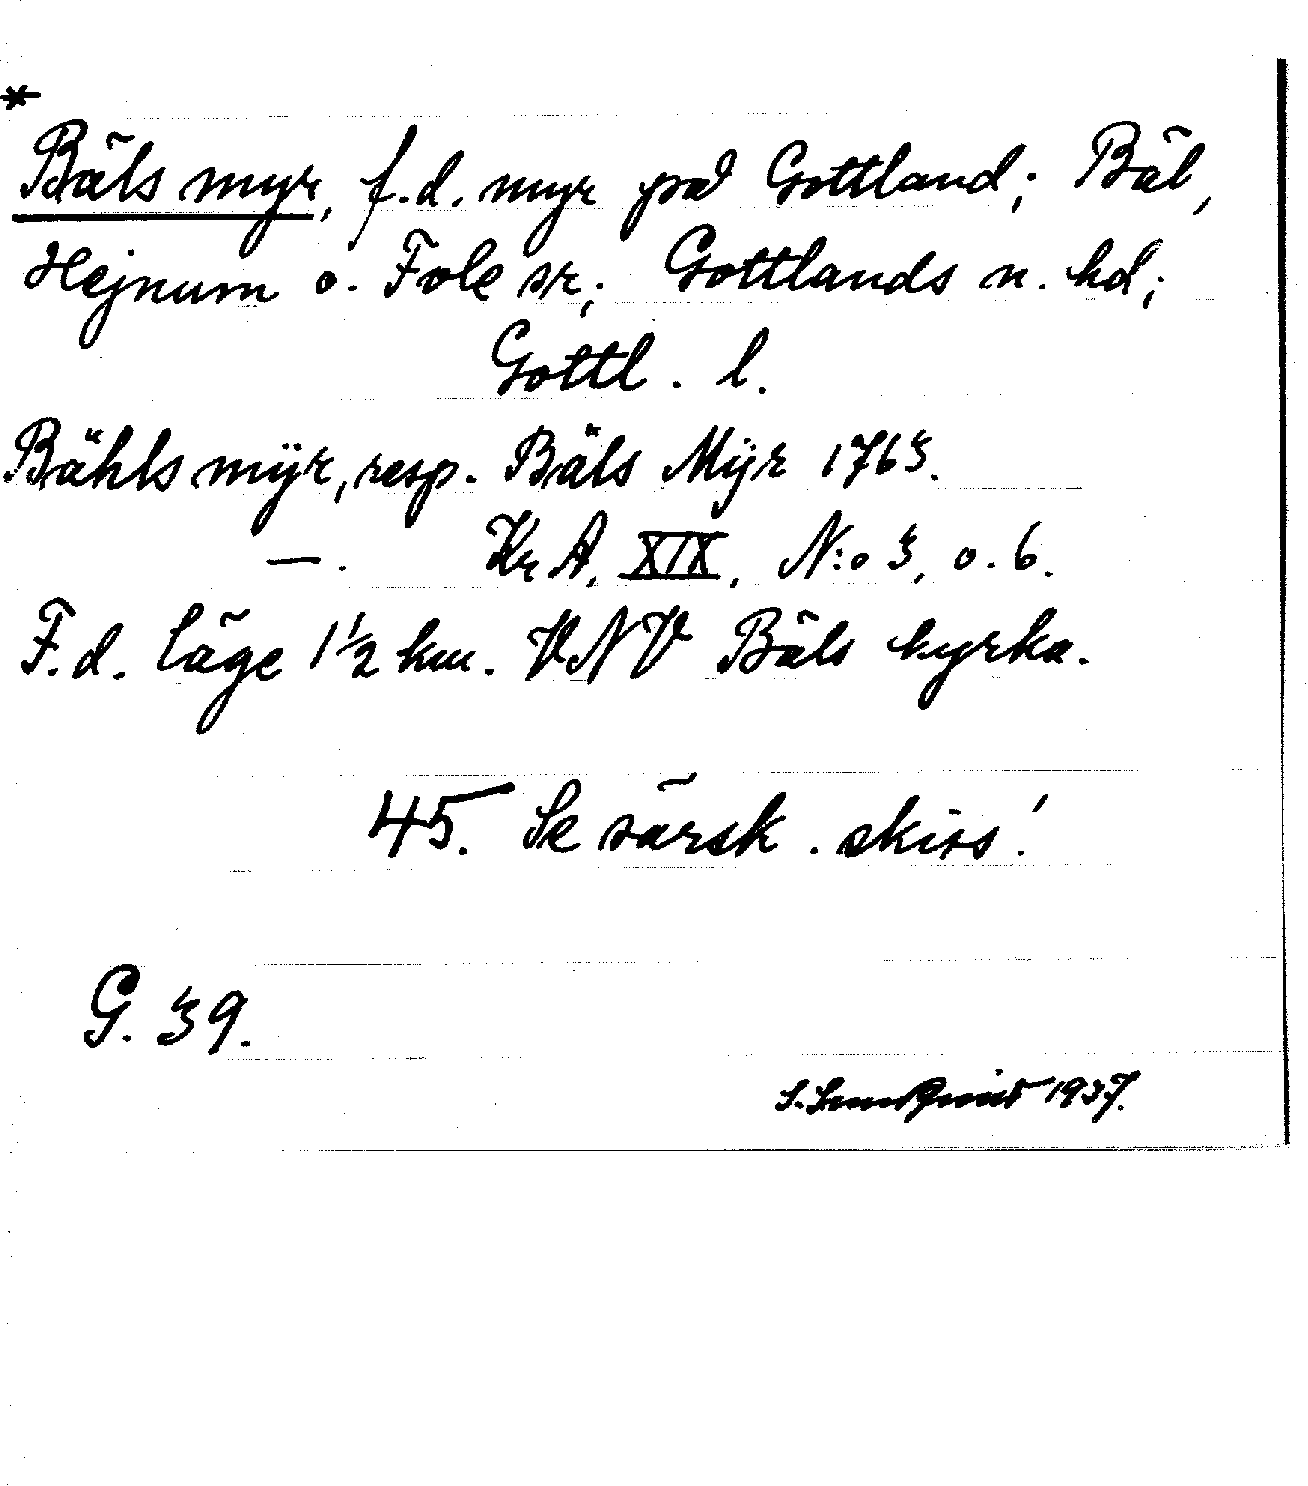 *
Bäls myr, f.d. myr på Gottland; Bäl,
Hejnum o. Fole sr; Gottlands n. hd;
Gottl. l.
Bähls mÿr, resp. Bäls Mÿr 1763.
—. Kr A, XIX, N:o 3, o. 6.
F.d. läge 1 1/2 km. VNV Bäls kyrka.
45. Se särsk. skiss!
G. 39.
S. 1937.